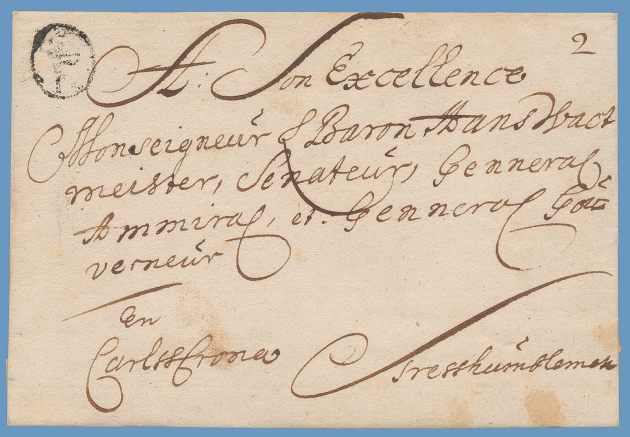 2
A: Son Excellence
Monseigneur l Baron Hans Wact
meister, Senateur, Genneral
Ammiral, et. Genneral Gou
verneur
En
CarlssCrona
Tresshumblement